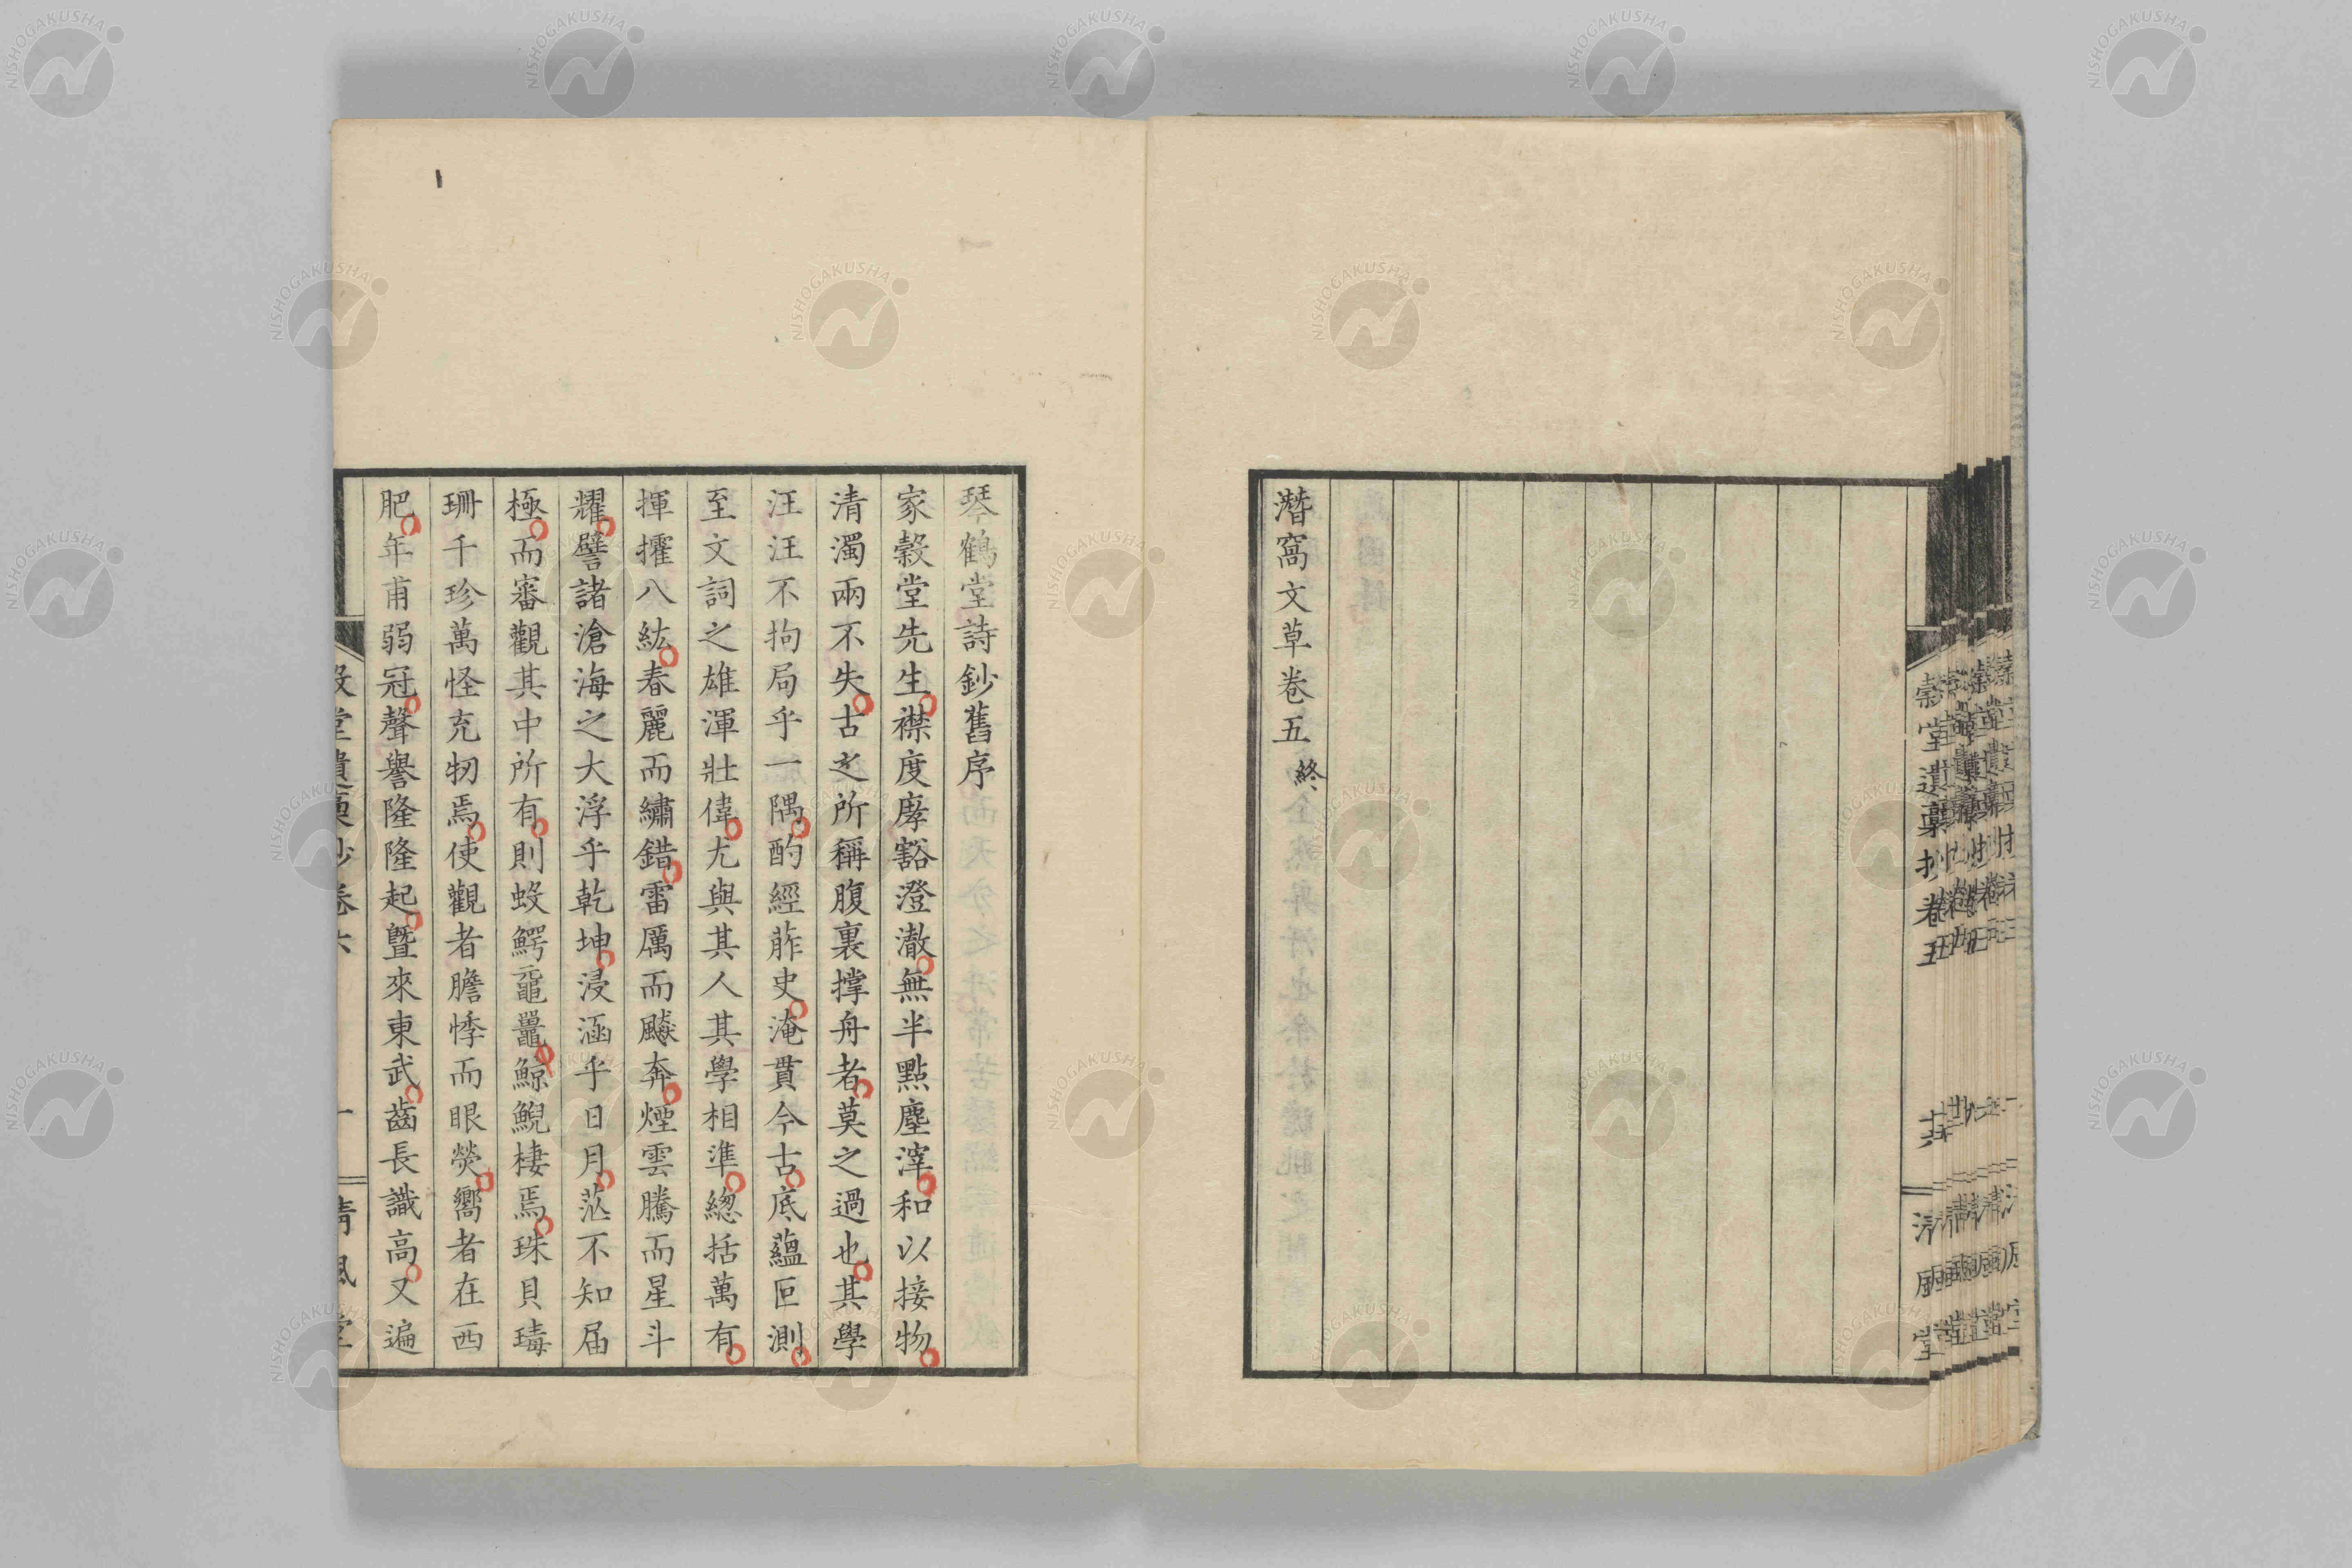 潛窩文草卷五終
穀堂遺稾抄卷五
清風堂
琴鶴堂詩鈔舊序
家穀堂先生襟度㢲豁澄澈無半點塵滓和以接物
清濁兩不失古之所稱腹裏撑舟者莫之過也其學
汪汪不拘局乎一隅酌經葄史淹貫今古底蘊叵測
至文詞之雄渾壯偉尤與其人其學相準緫括萬有
揮擢八紘春麗而繡錯雷厲而飇奔煙雲騰而星斗
耀譬諸滄海之大浮乎乾坤浸涵乎日月茫不知届
極而審觀其中所有則蛟鰐黿鼉鯨鯢棲焉珠貝瑇
珊千珍萬怪充牣焉使觀者膽悸而眼熒嚮者在西
肥年甫弱冠聲譽隆隆起曁來東武齒長識高又遍
NISHOGAKUSHA